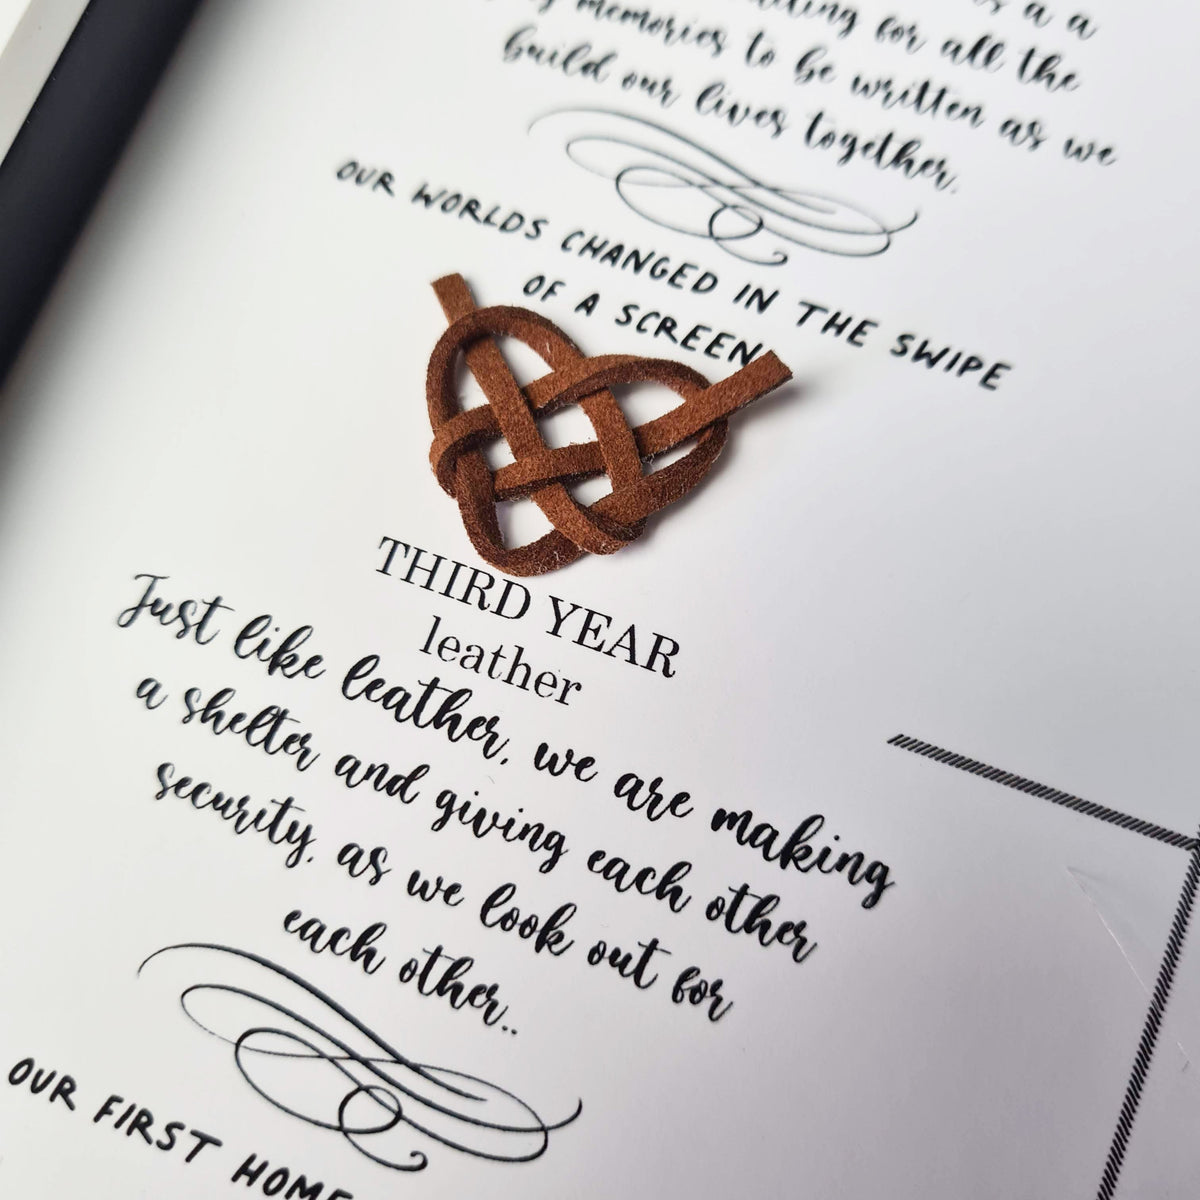 a a
for all the
memories to be written as we
build our lives together.
OUR WORLDS CHANGED IN THE SWIPE
OF A SCREEN
THIRD YEAR
leather
Just like leather, we are making
a shelter and giving each other
security, as we look out for
each other..
OUR FIRST HOME